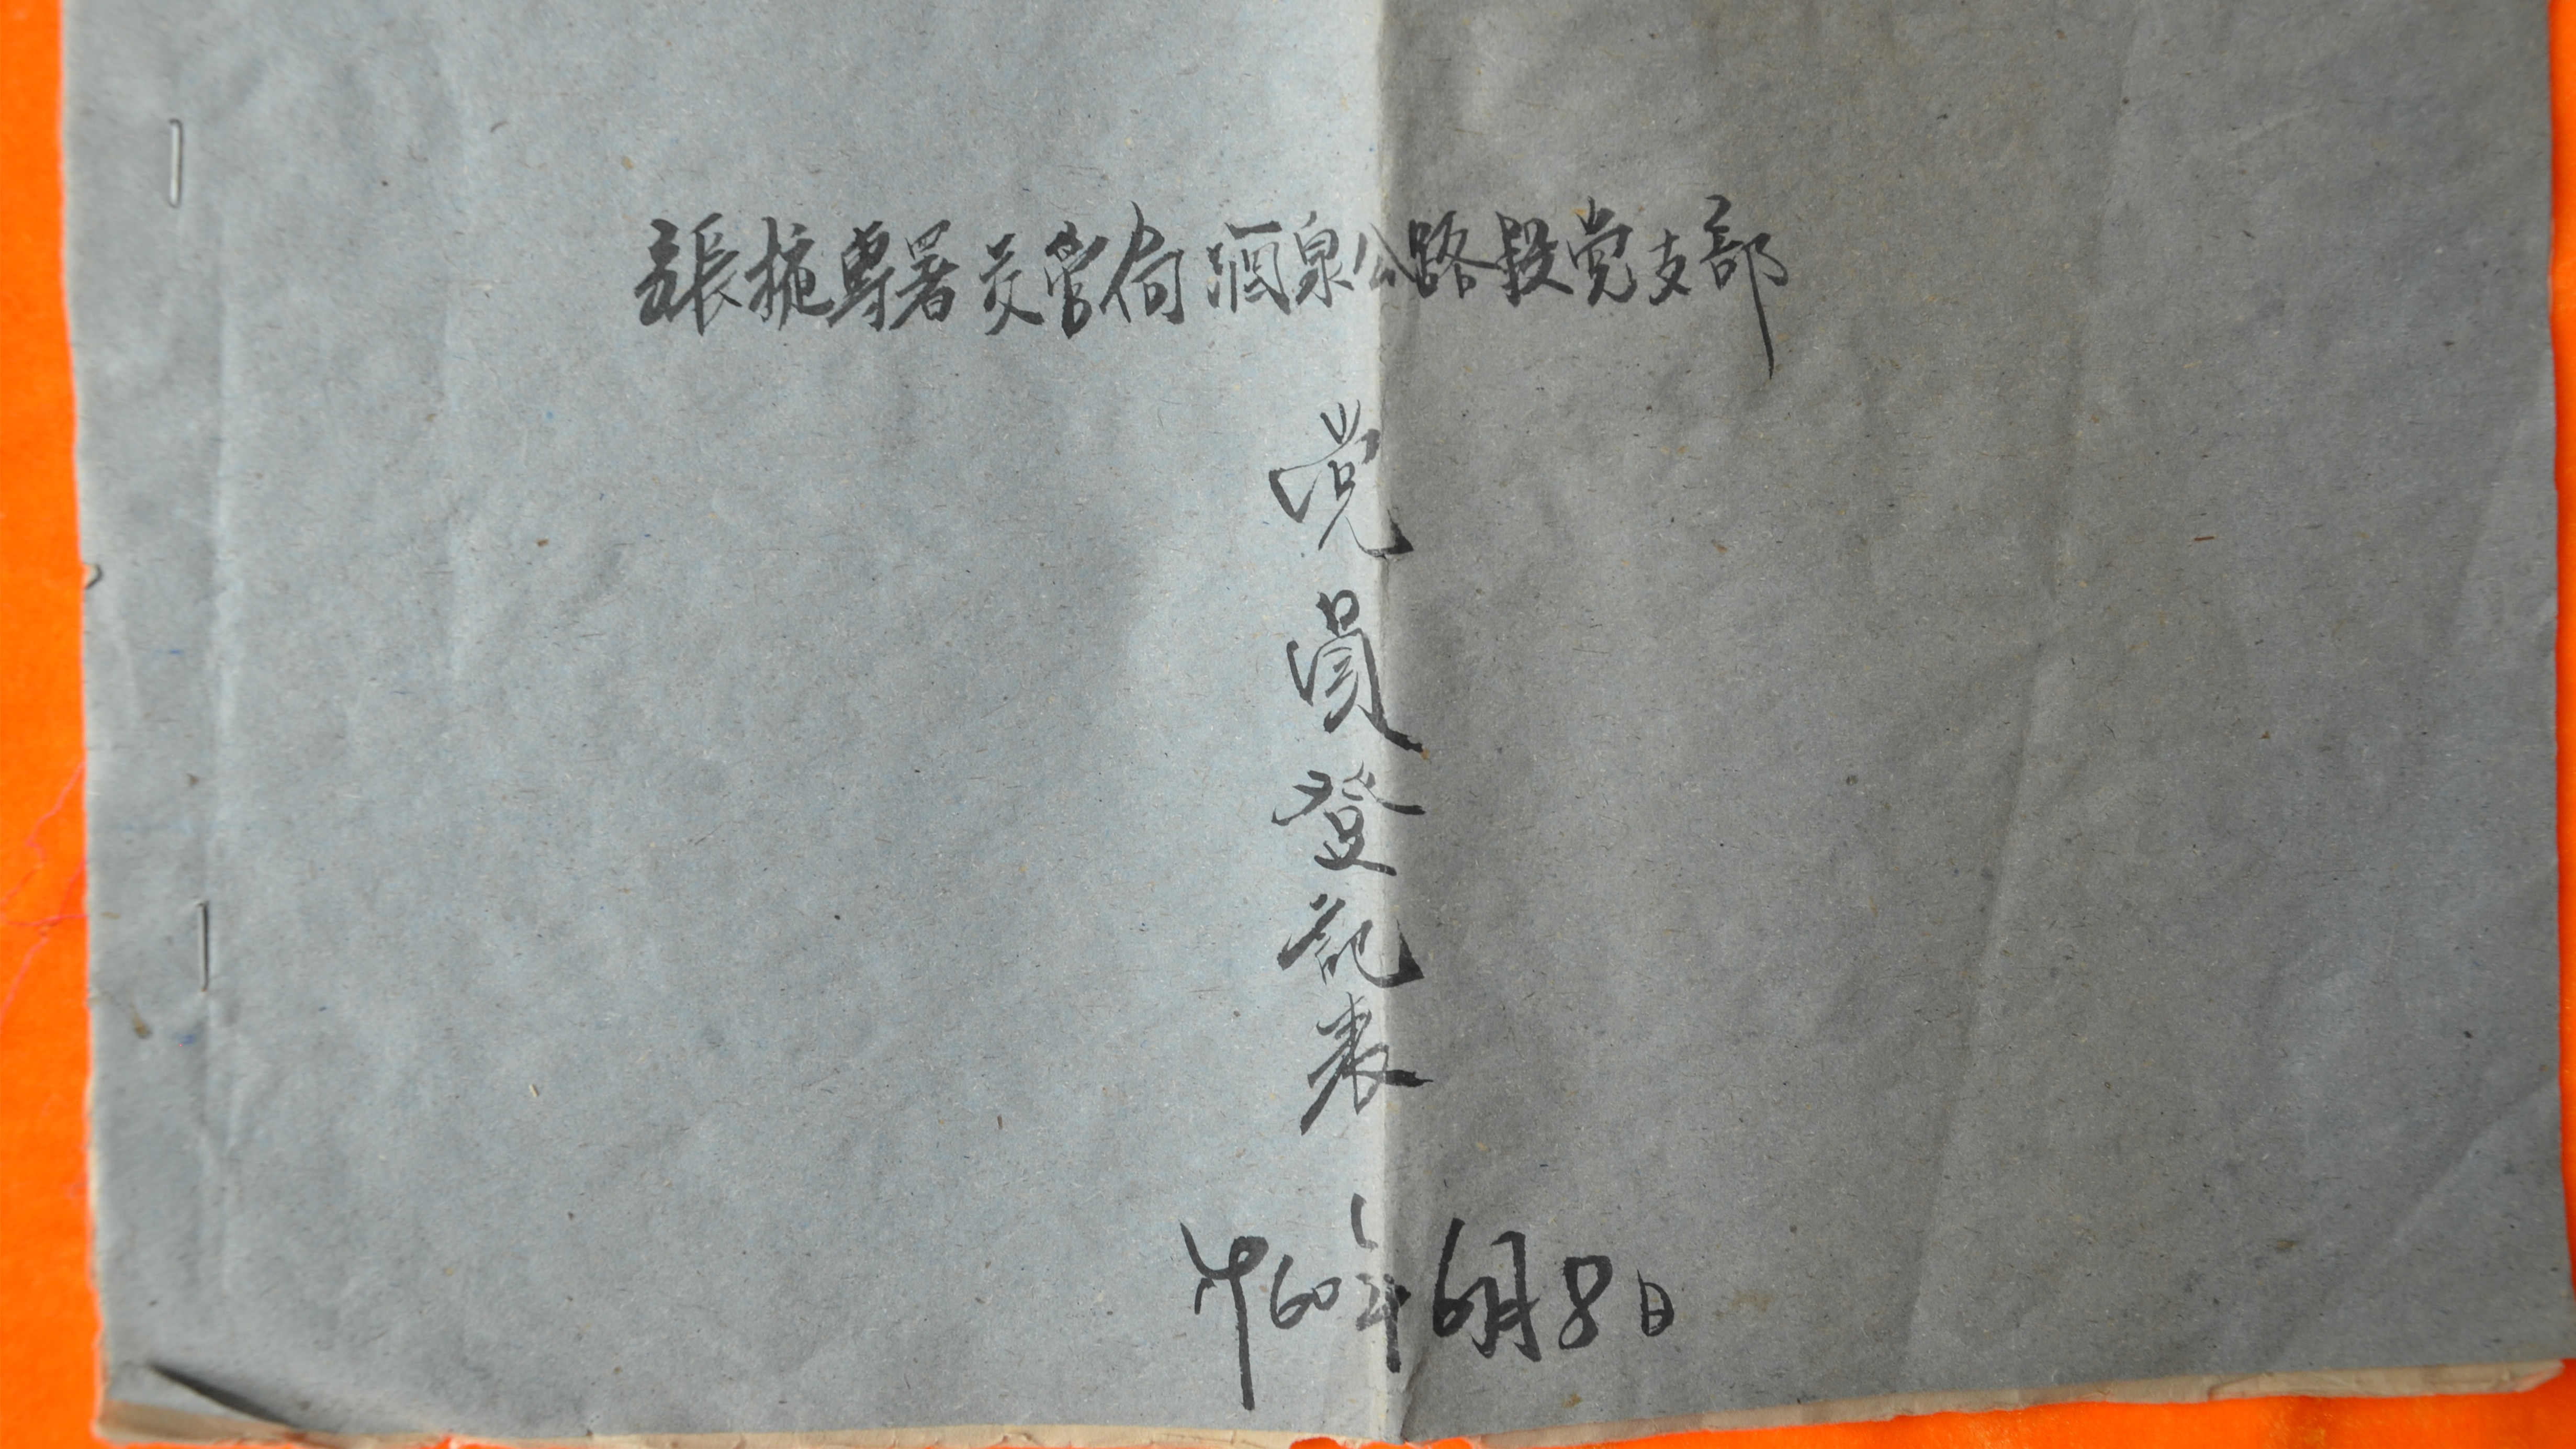 張掖專署交管局酒泉公路段党支部
党员登記表
1960年6月8日